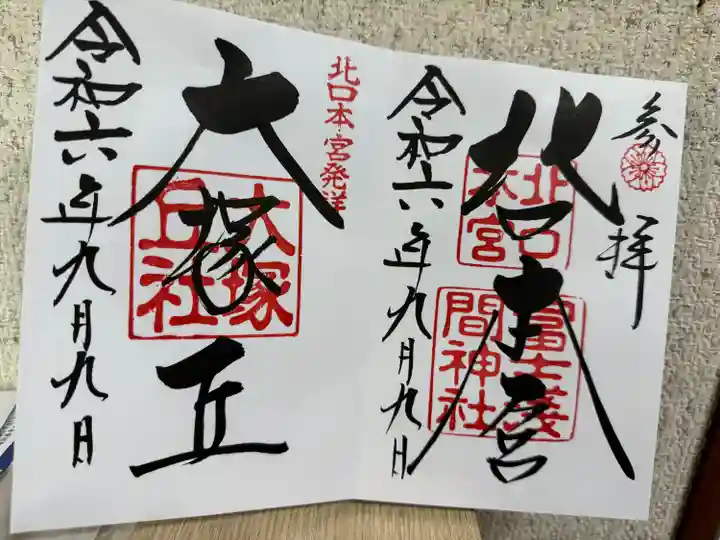 参拝
北口本宮
北口
本宮
冨士浅
間神社
令和六年九月九日
北口本宮発祥
大塚丘
大塚
丘社
令和六年九月九日